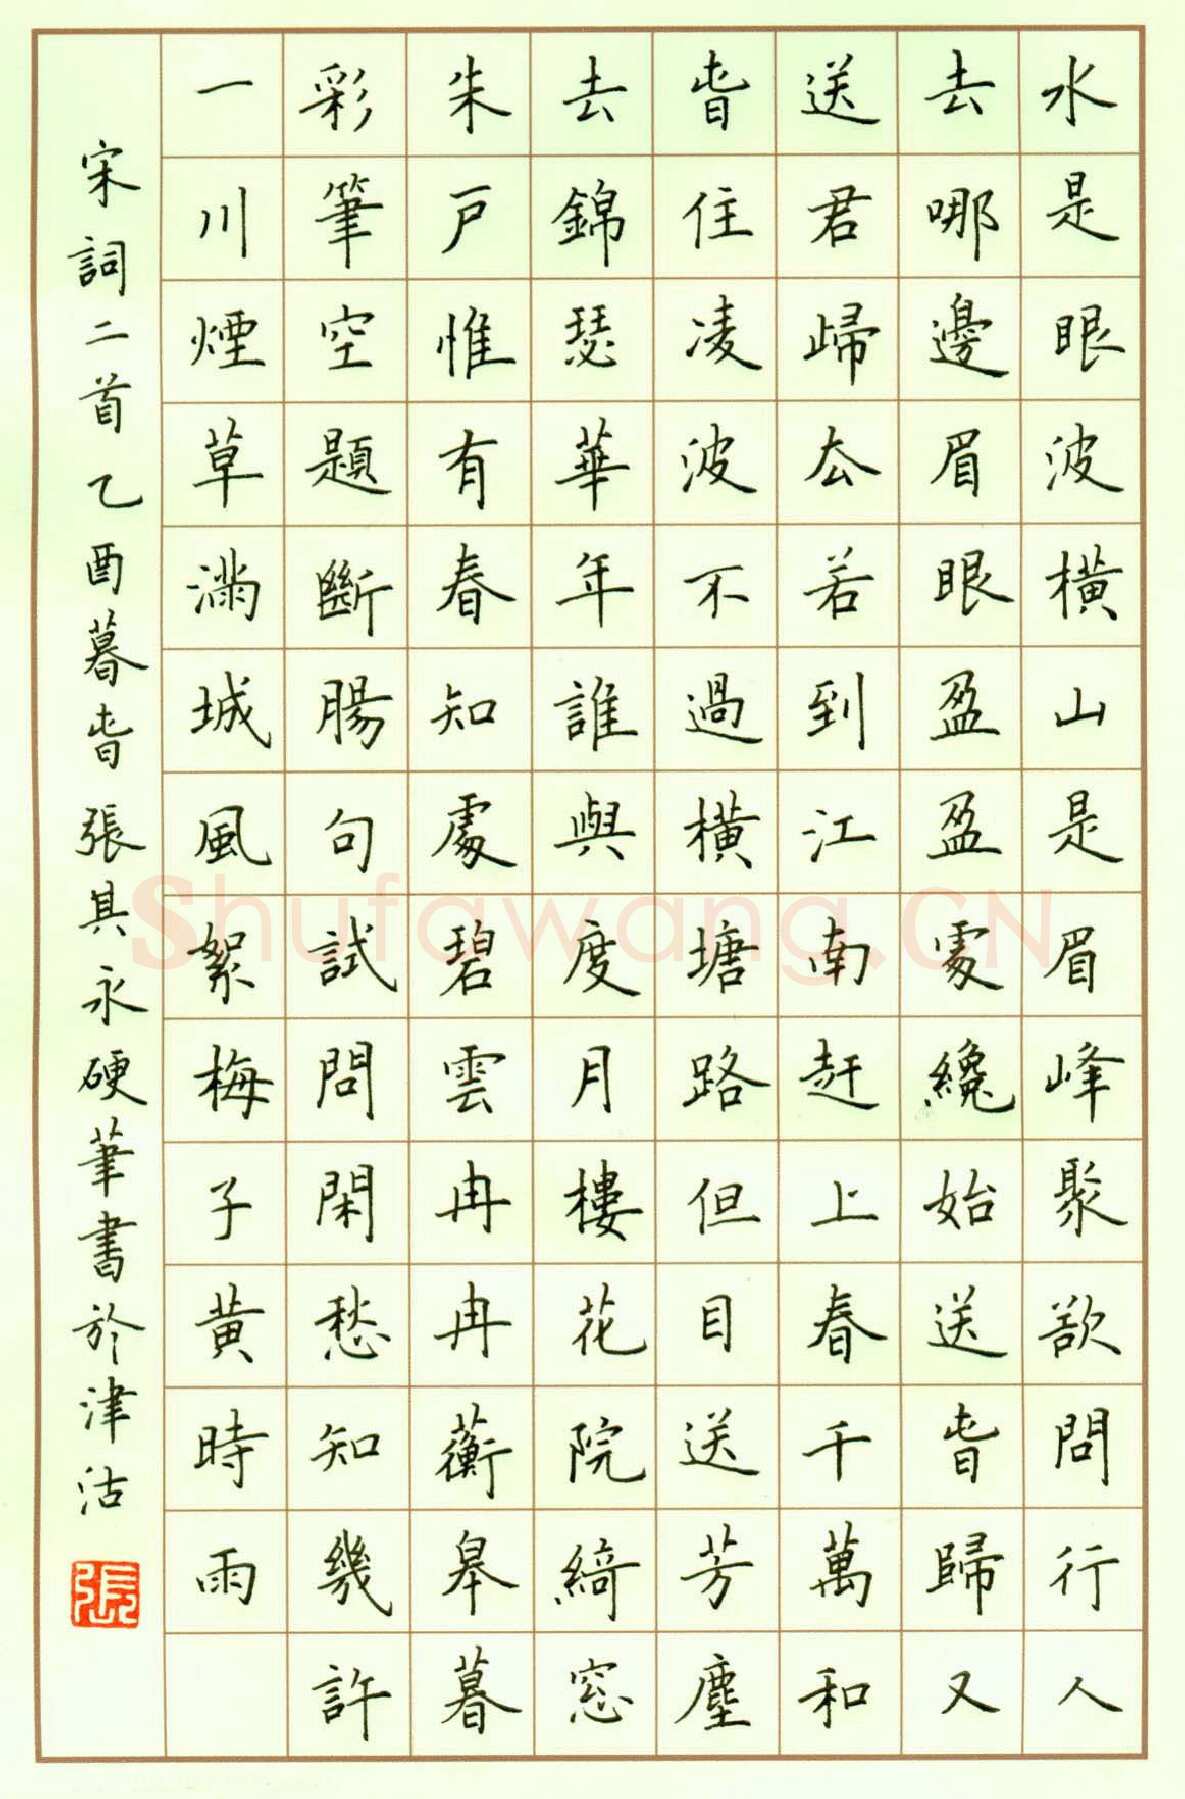 水是眼波橫山是眉峰聚欲問行人
去哪邊眉眼盈盈處纔始送旾歸又
送君歸厺若到江南赶上春千萬和
旾住凌波不過橫塘路但目送芳塵
去錦瑟華年誰與度月樓花院綺窓
朱戶惟有春知處碧雲冉冉蘅皋暮
彩筆空題斷腸句試問閑愁知幾許
一川煙草滿城風絮梅子黃時雨
宋詞二首乙酉暮旾張其永硬筆書於津沽
張
Shufawang.CN